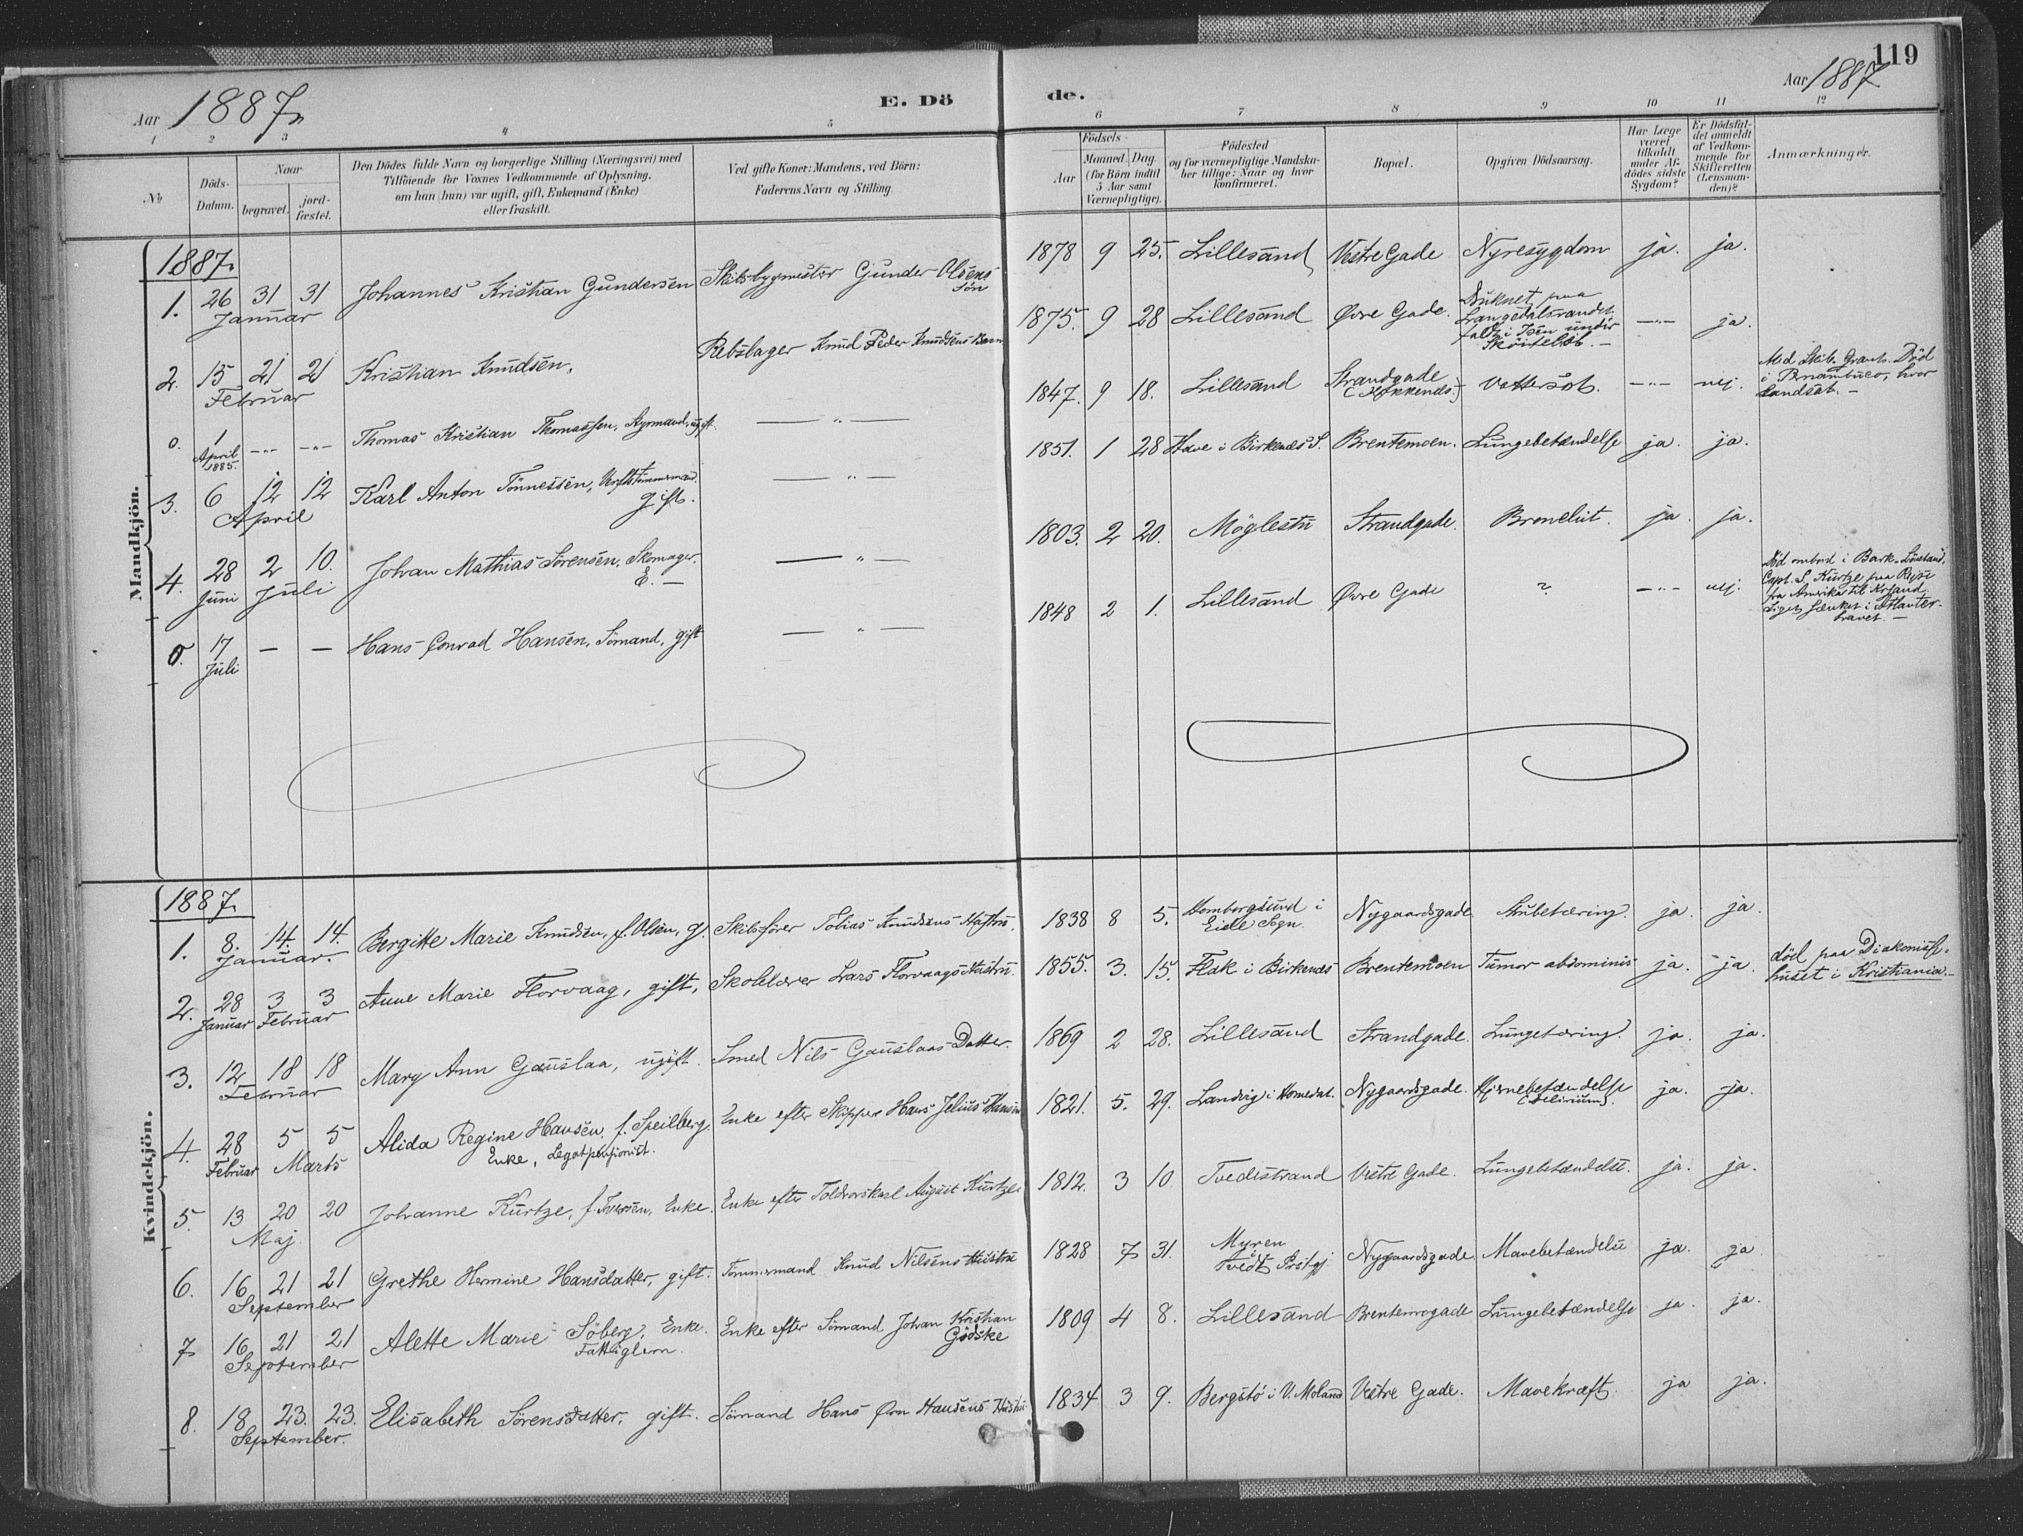 119
Aar 1887. E. Dö de. Aar 1887
1 2 3 4 5 6 7 8 9 10 11 12
No
Döds-Datum.
Naar
begravet.
jordfæstet.
Den Dödes fulde Navn og borgerlige Stilling (Næringsvei) med
Tilföiende for Voxnes Vedkommende af Oplysning,
om han (hun) var ugift, gift, Enkemand (Enke)
eller fraskilt.
Ved gifte Koner: Mandens, ved Börn:
Faderens Navn og Stilling.
Födsels-
Aar
Maaned. Dag
(for Börn indtil
5 Aar samt
Værnepligtige).
Födested
og for værnepligtige Mandska-
ber tillige: Naar og hvor
konfirmeret.
Bopæl.
Opgiven Dödsaarsag.
Har Læge
været
tilkaldt
under Af-
dödes sidste
Sygdom?
Er Dödsfal-
det anmeldt
af Vedkom-
mende for
Skifteretten
(Lensman-
den)?
Anmærkninger.
Mandkjön.
1887.
1. 26 31 31 Januar Johannes Kristian Gundersen Skibsbygmester Gunder Olsens Sön 1878 9 25. Lillesand Vestre Gade Nyresygdom ja. ja.
2. 15 21 21 Februar Kristian Knudsen. Rebslager Knud Peder Knudsens Barn 1875. 9 28 Lillesand Övre Gade. Druknet paa Langedalsvandet faldt i Isen under Sköitelöb. — —"— ja.
0. 1 April 1885. —"— —"— Thomas Kristian Thomassen, Styrmand, ugift. — " — 1847. 9 18. Lillesand Strandgade Vattersot. —"— nej. Med Skib. Grant. Död i Pernambuco, hvor landsat. —
3. 6 12 12 April Karl Anton Tönnessen, Verftstömmermand. gift. — " — 1851. 1 28 Have i Birkenes S. Brentemoen. Lungebetændelse ja. ja.
4. 28 Juni 2 10. Juli Johan Mathias Sörensen, Skomager. E. — — " — 1803. 2 20. Möglestu Strandgade. ja. ja.
0. 17 Juli — — Hans Conrad Hansen, Sömand, gift — " — 1848 2 1. Lillesand Övre Gade ? —"— nej. Död ombord i Bark Capt. S. Kurtze paa Reise fra Amerika til Krsand Liget sænket i Atlanter-havet. —
Kvindekjön.
1887.
1. 8. 14. 14. Januar. Bergitte Marie Knudsen, f. Olsen, g. Skibsförer Tobias Knudsens Hustru. 1838 8 5. Homborgsund i Eide Sogn. Nygaardsgade ja. ja.
2. 28 Januar 3 3 Februar Anne Marie Florvaag, gift, Skolelærer Lars Florvaags Hustru. 1855. 3. 15. Flak i Birkenes Brentemoen Tumor abdominis ja. ja. död paa Diakonisse-huset i Kristiania.
3. 12 18 18 Februar Mary Ann Gauslaa, ugift. Smed Nils Gauslaas Datter. 1869 2 28. Lillesand Strandgade. Lungetæring. ja. ja.
4. 28 Februar 5 5 Marts Alida Regine Hansen, f. Speilberg. Enke, Legatpensionist. Enke efter Skipper Hans Jelius Hansen 1821. 5. 29. Landvig i Homedal. Nygaardsgade. Hjernebetændelse (delirium). ja. ja.
5. 13 20 20 Maj. Johanne Kurtze, f. Iversen, Enke. Enke efter Toldrorskarl August Kurtze 1812. 3 10. Tvedestrand Vestre Gade. Lungebetændelse. ja. ja.
6. 16 21 21 September Grethe Hermine Hansdatter, gift. Tömmermand Knud Nilsens Hustru 1828 7 31. Myren i Tvedt Prstgj Nygaardsgade. Mavebetændelse ja. ja
7 16 21 21 September Alette Marie Söberg, Enke. Fattiglem. Enke efter Sömand Johan Kristian Gödske 1809 4 8. Lillesand Brentemogade Lungebetændelse ja ja.
8. 18 23. 23. September. Elisabeth Sörensdatter, gift. Sömand Hans Örn Hansens Hustru 1834 3 9. Bergstö i V. Moland Vestre Gade. Mavekræft. ja ja.